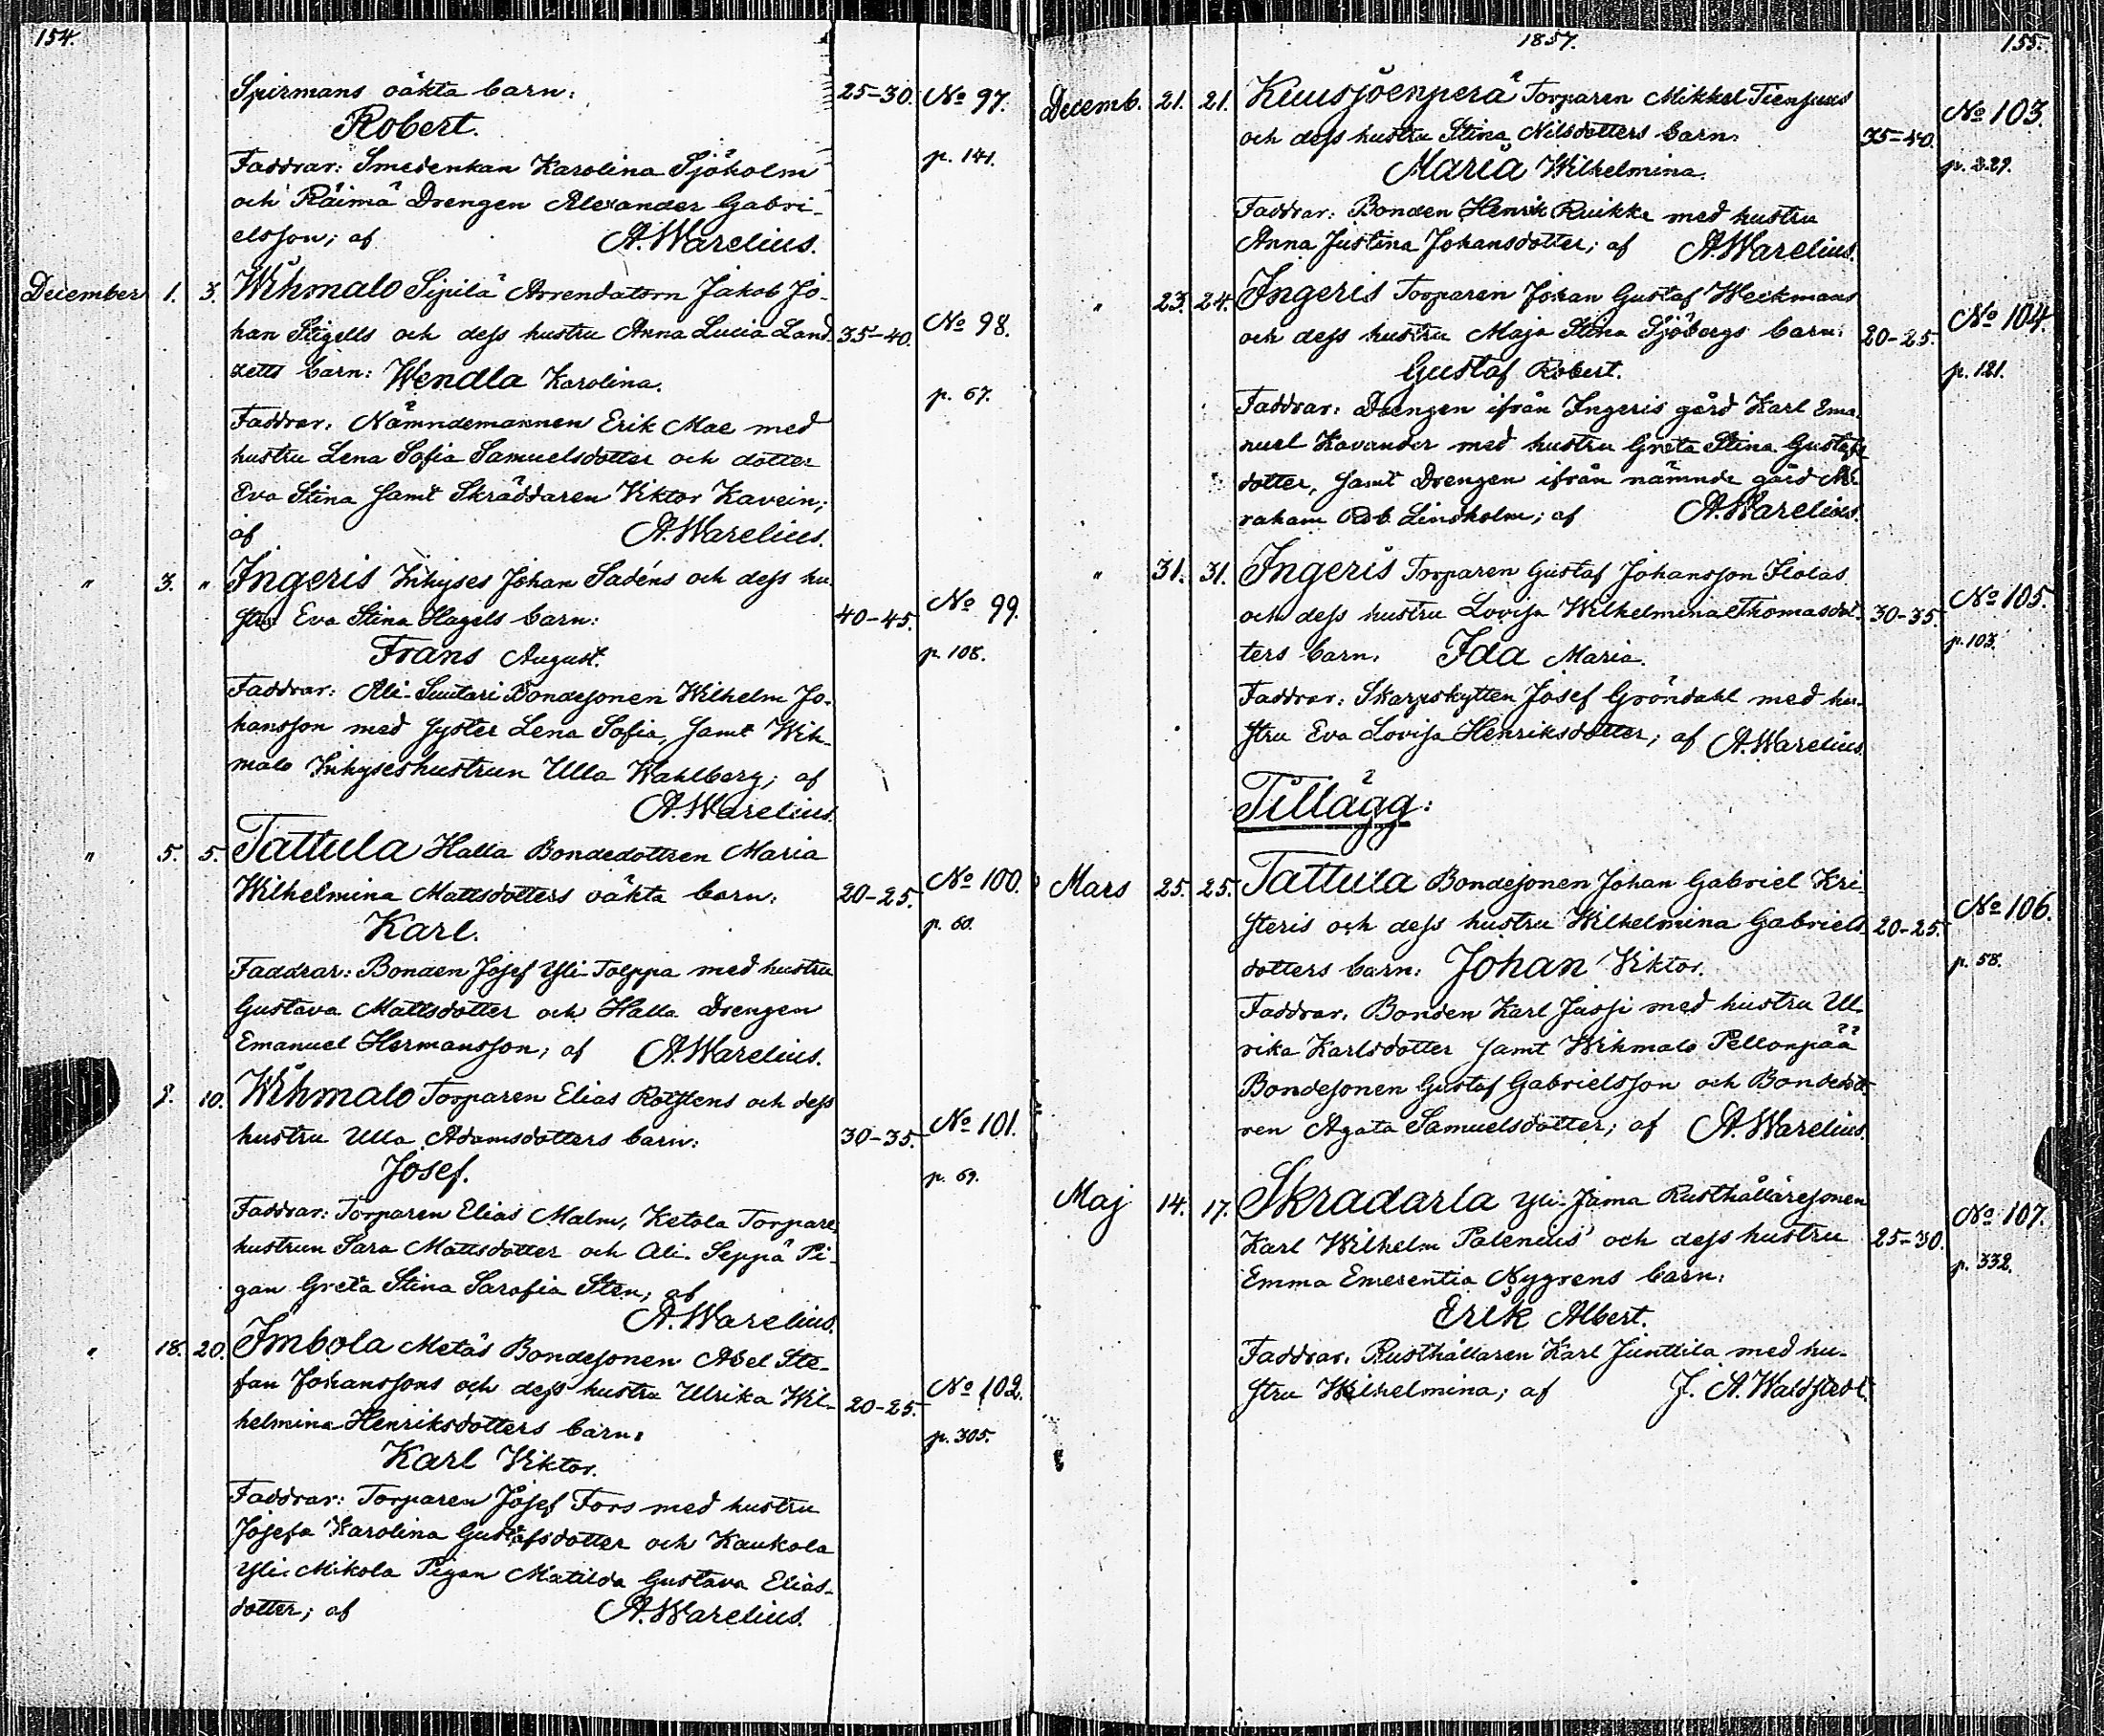 154.
Spirmans oäkta barn: 25-30. No 97.
Robert.
Faddrar: Smedenkan Karolina Sjöholm p. 141.
och Räimä Drengen Alexander Gabri-
elsson; af A. Warelius.
December 1. 3. Wihmalo Sipilä Arrendatorn Jakob Jo-
han Stigells och dess hustru Anna Lucia Land- 35-40. No 98.
zetts barn: Wendla Karolina. p. 67.
Faddrar: Nämndemannen Erik Mae med
hustru Lena Sofia Samuelsdotter och dotter
Eva Stina samt Skräddaren Viktor Kavein;
af A. Warelius.
" 3. " Ingeris Inhyses Johan Sadéns och dess hu-
stru Eva Stina Hagels barn: 40-45. No 99.
Frans August. p. 108.
Faddrar: Ali-Suutari Bondesonen Wilhelm Jo-
hansson med syster Lena Sofia, samt Wih-
malo Inhyseshustrun Ulla Wahlberg; af
A. Warelius.
" 5. 5. Tattula Halla Bondedottren Maria
Wilhelmina Mattsdotters oäkta barn: 20-25. No 100.
Karl. p. 60.
Faddrar: Bonden Josef Yli-Tolppa med hustru
Gustava Mattsdotter och Halla Drengen
Emanuel Hermansson; af A. Warelius.
10. Wihmalo Torparen Elias Rotstens och dess
hustru Ulla Adamsdotters barn: 30-35. No 101.
Josef. p. 69.
Faddrar: Torparen Elias Malm, Ketola Torpare-
hustrun Sara Mattsdotter och Ali-Seppä Pi-
gan Greta Stina Sarafia Sten; af
A. Warelius.
" 18. 20. Imbola Metäs Bondesonen Abel Ste-
fan Johanssons och dess hustru Ulrika Wil- 20-25. No 102.
helmina Henriksdotters barn: p. 305.
Karl Viktor.
Faddrar: Torparen Josef Fors med hustru
Josefa Karolina Gustafsdotter och Kaukola
Yli-Mikola Pigan Matilda Gustava Elias-
dotter; af A. Warelius.
1857. 155.
Decemb. 21. 21. Kuusjöenperä Torparen Mikkel Tiensuus No 103.
och dess hustru Stina Nilsdotters barn: 35-40.
Maria Wilhelmina. p. 229.
Faddrar: Bonden Henrik Ruikka med hustru
Anna Justina Johansdotter; af A. Warelius.
" 23. 24. Ingeris Torparen Johan Gustaf Weckmans
och dess hustru Maja Stina Sjöbergs barn: 20-25. No 104.
Gustaf Robert. p. 121.
Faddrar: Drengen ifrån Ingeris gård Karl Ema-
nuel Kavander med hustru Greta Stina Gustafs-
dotter, samt Drengen ifrån nämnde gård Ab-
raham Rob. Lindholm; af A. Warelius.
" 31. 31. Ingeris Torparen Gustaf Johansson Flolas
och dess hustru Lovisa Wilhelmina Thomasdot- 30-35. No 105.
ters barn: Ida Maria. p. 103.
Faddrar: Skarpskytten Josef Gröndahl med hu-
stru Eva Lovisa Henriksdotter; af A. Warelius.
Tillägg:
Mars 25. 25. Tattula Bondesonen Johan Gabriel Kri-
steris och dess hustru Wilhelmina Gabriels- 20-25. No 106.
dotters barn: Johan Viktor. p. 58.
Faddrar: Bonden Karl Jussi med hustru Ul-
rika Karlsdotter samt Wihmalo Pellonpää
Bondesonen Gustaf Gabrielsson och Bondedott-
ren Agata Samuelsdotter; af A. Warelius.
Maj 14. 17. Skradarla Yli-Jäma Rusthållaresonen No 107.
Karl Wilhelm Palenius' och dess hustru 25-30.
Emma Emerentia Nygrens barn: p. 332.
Erik Albert.
Faddrar: Rusthållaren Karl Junttila med hu-
stru Wilhelmina; af J. A. Waldstedt.